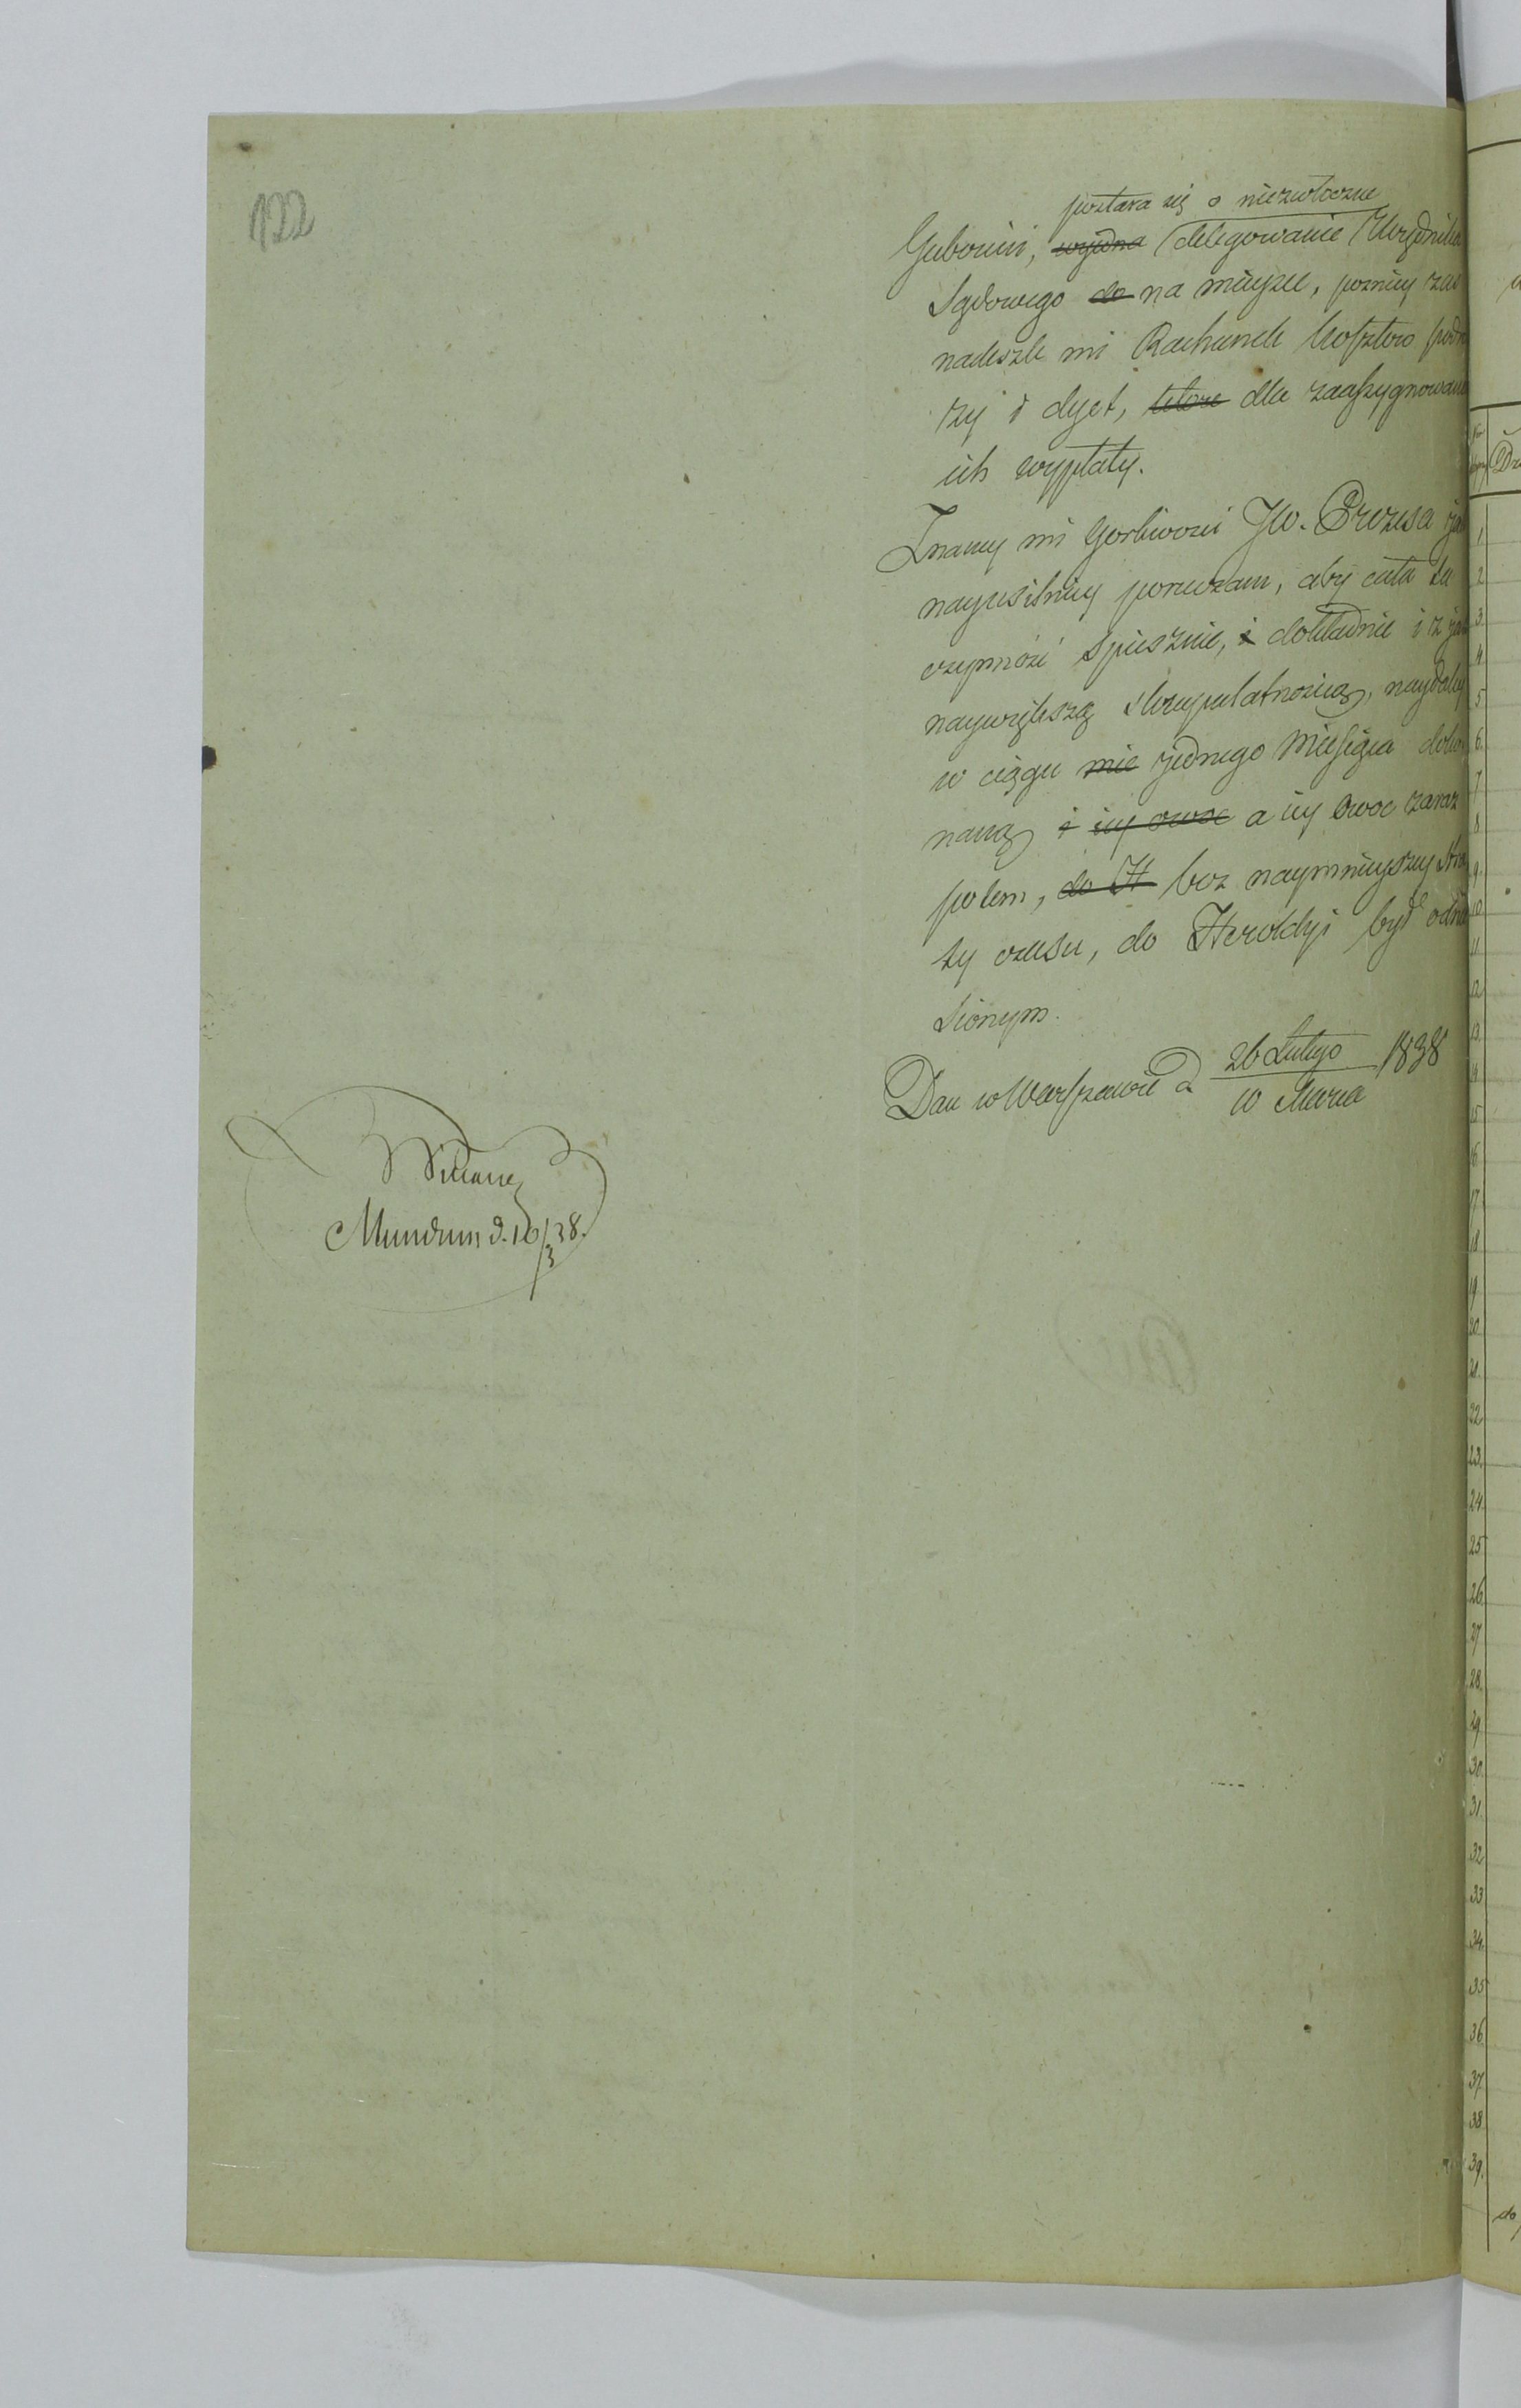 122
postara się o niezwłoczne
Gubernii, wyjedna delegowanie Urzędnika
Sądowego do na mieysce, pozniey zas
nadeszle mi Rachunek kosztow podro
zy i dyet, ktore dla zaassygnowania
ich wypłaty.
Znaney mi Gorliwosci JW. Prezesa
nayusilniey poruczam, aby cała ta
czynność spiesznie, i dokładnie i z jak
naywiększą skrupulatnością, naydaley
w ciągu mie jednego Miesiąca doko
naną i iey owoc a iey owoc zaraz
potem, do H bez naymnieyszey stra
ty czasu, do Heroldyi był odnie
sionym.
Dan w Warszawie d 26 Lutego 1838
10 Marca
Mundum d. 16/3 38.
1
2
3.
4
5
6.
7
8
9.
10
11
12
13.
14
15
16
17.
18
19
20.
21.
22
23.
24.
25
26
27
28.
29.
30.
31.
32
33
34.
35
36
37
38
39.
do